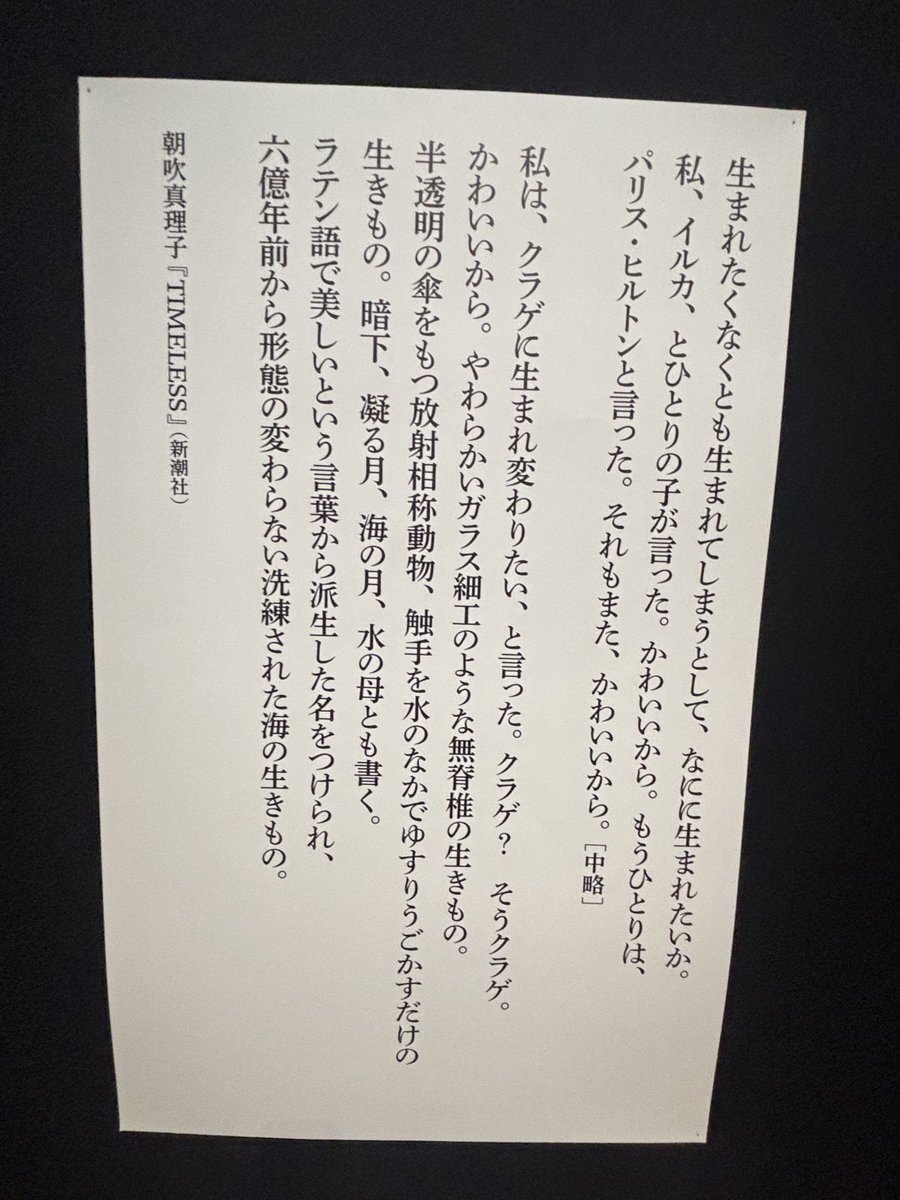 生まれたくなくとも生まれてしまうとして、なにに生まれたいか。
私、イルカ、とひとりの子が言った。かわいいから。もうひとりは、
パリス・ヒルトンと言った。それもまた、かわいいから。［中略］
私は、クラゲに生まれ変わりたい、と言った。クラゲ？　そうクラゲ。
かわいいから。やわらかいガラス細工のような無脊椎の生きもの。
半透明の傘をもつ放射相称動物、触手を水のなかでゆすりうごかすだけの
生きもの。暗下、凝る月、海の月、水の母とも書く。
ラテン語で美しいという言葉から派生した名をつけられ、
六億年前から形態の変わらない洗練された海の生きもの。
朝吹真理子『TIMELESS』（新潮社）